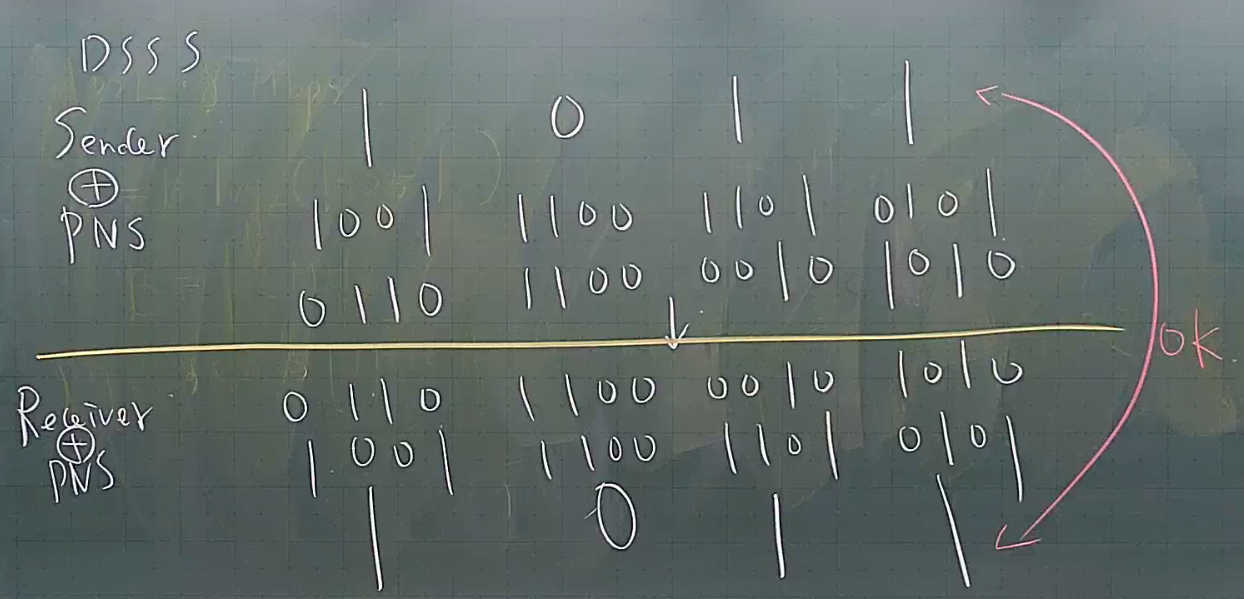 DSSS
Sender 1 0 1 1
⊕
PNS 1001 1100 1101 0101
0110 1100 0010 1010
Receiver 0110 1100 0010 1010
⊕
PNS 1001 1100 1101 0101
1 0 1 1
ok